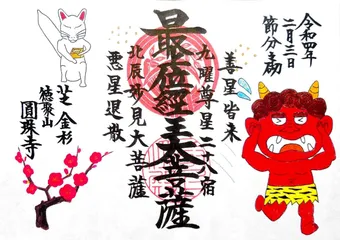 令和四年
二月三日
節分会
善星皆来
九曜尊星二十八宿
最位經王大菩薩
北辰妙見大菩薩
悪星退散
芝金杉
徳聚山
圓珠寺